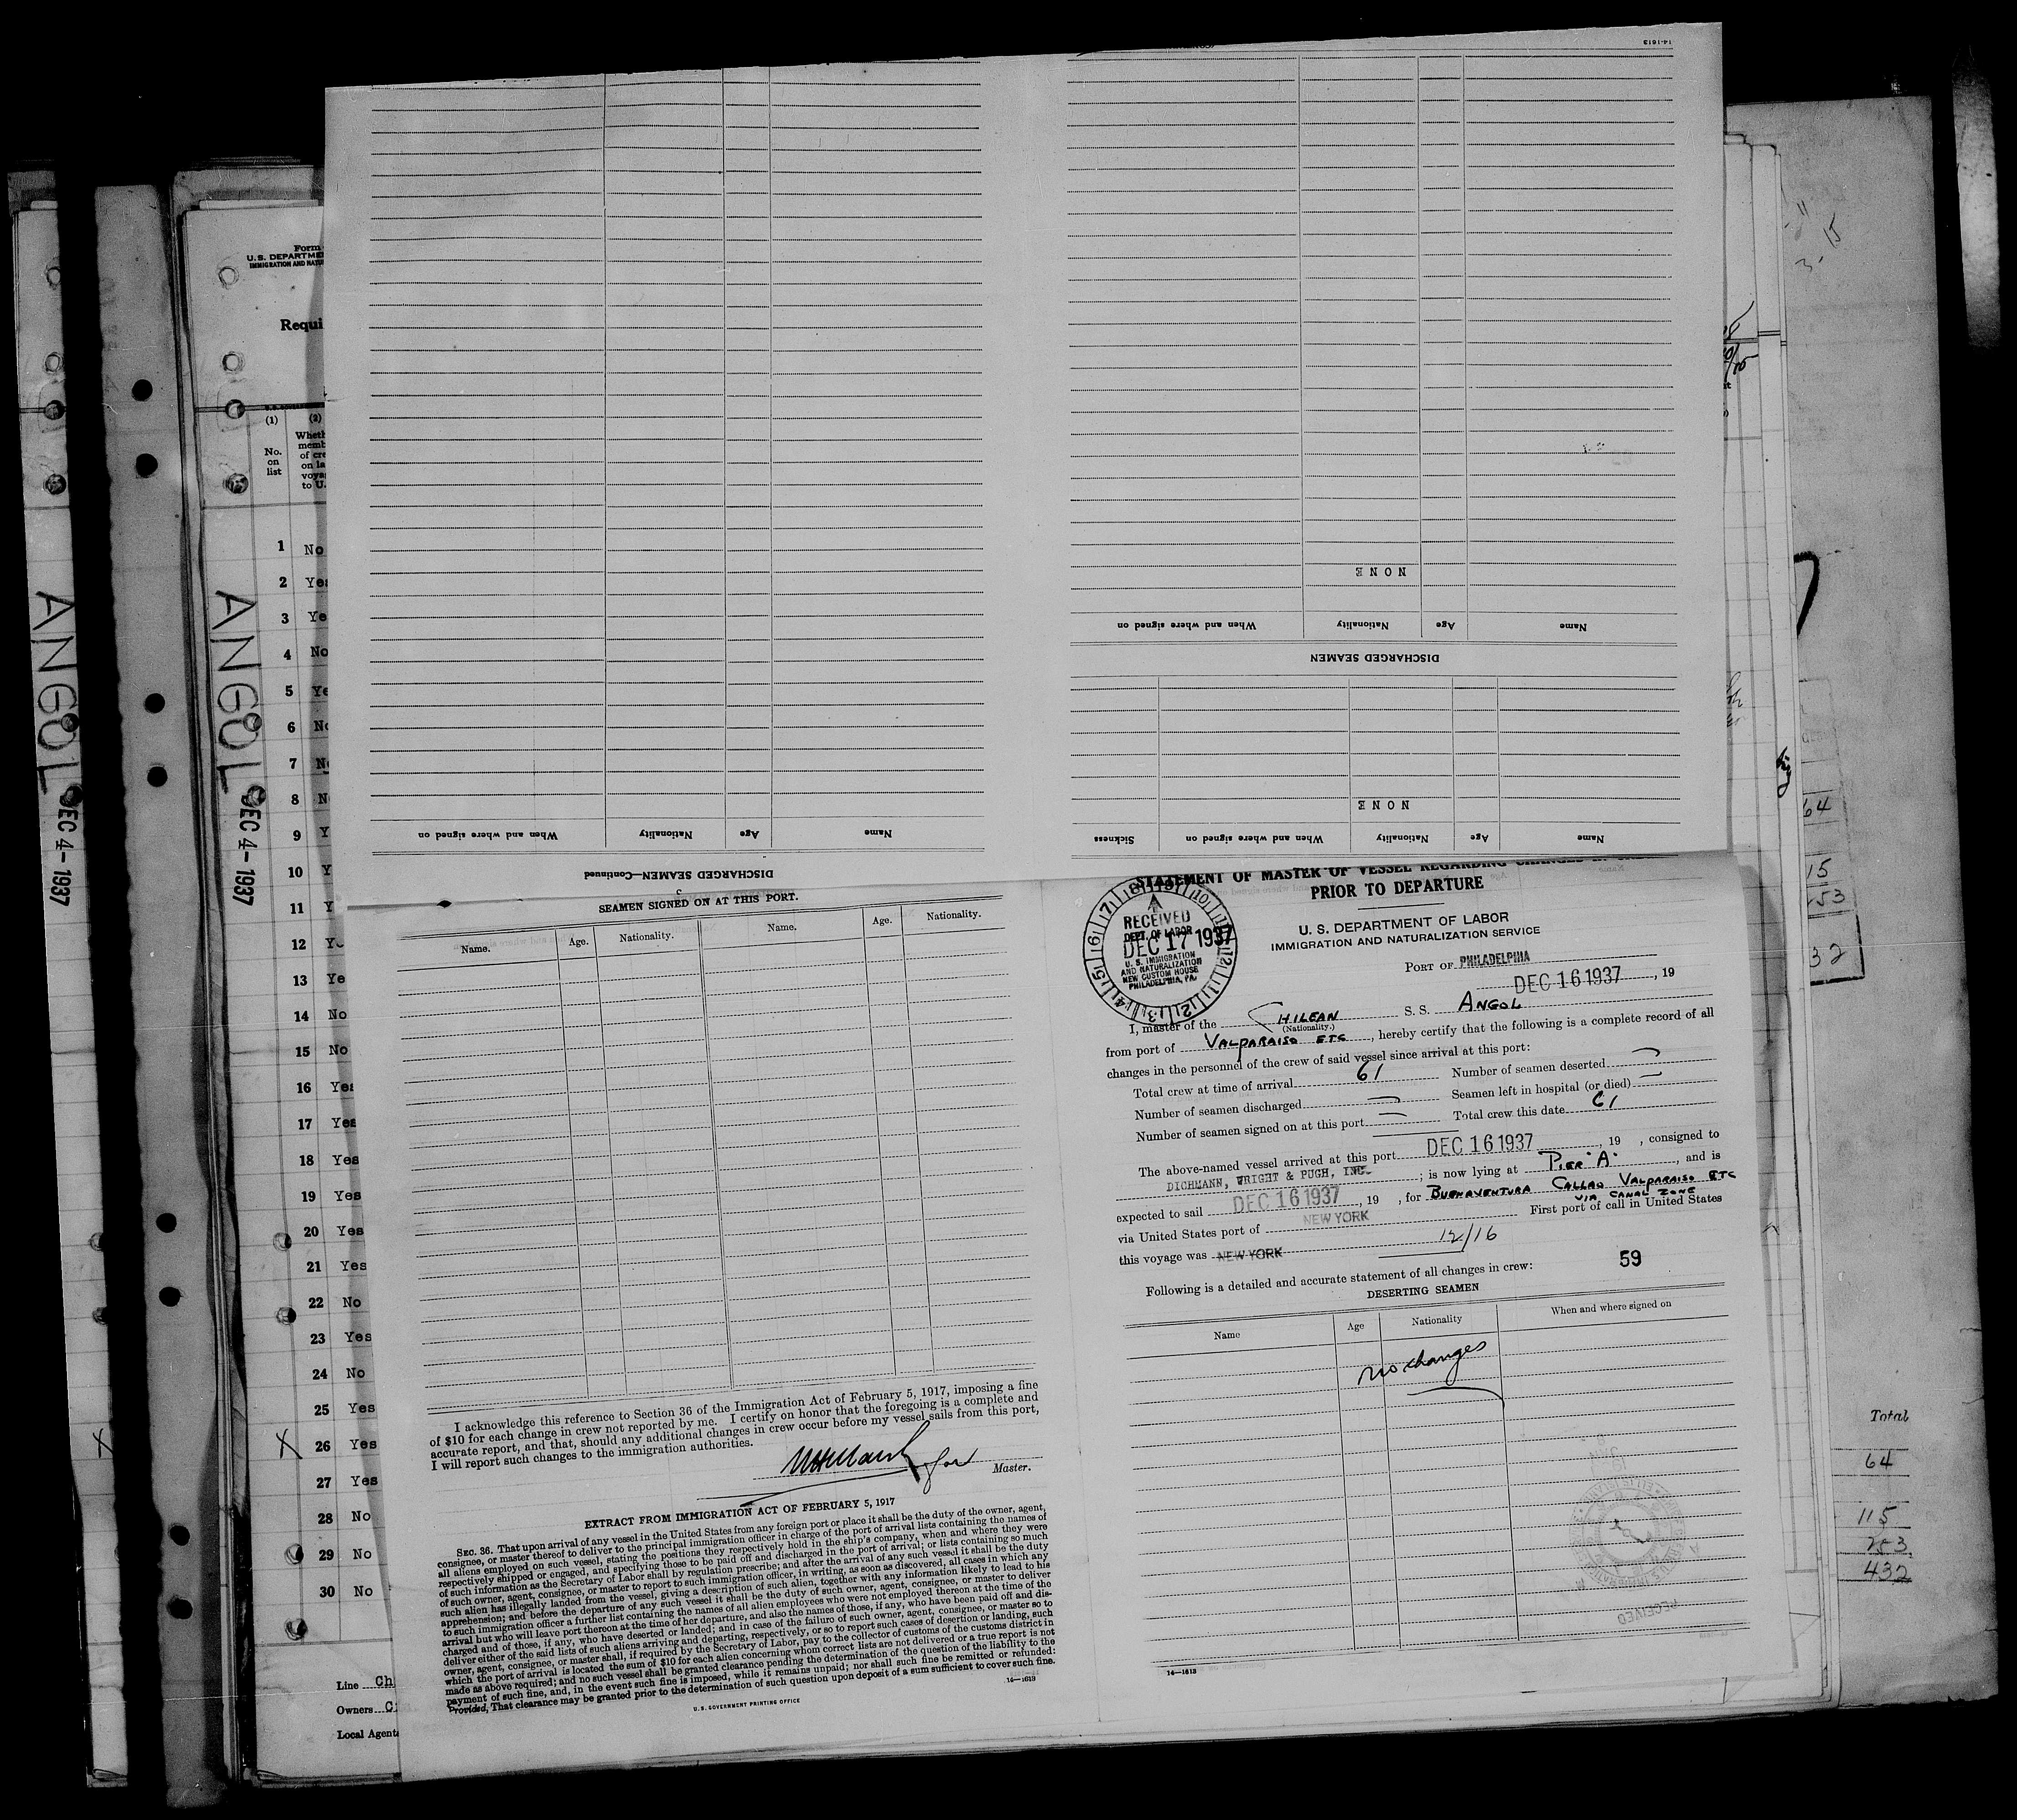 14-1613
NONE
When and where signed on Nationality Age Name
DISCHARGED SEAMEN
NONE
Sickness When and where signed on Nationality Age Name
When and where signed on Nationality Age Name
DISCHARGED SEAMEN—Continued
Form
U.S. DEPARTME
IMMIGRATION AND NATU
Requi
(1) (2)
No. on list
Wheth
memb
of cre
on la
voya
to U.
1 No
2 Yes
3 Ye
4 No
5 Ye
6 No
7 No
8 N
9 Y
10 Y
11 Y
12 Y
13 Ye
14 No
15 No
16 Yes
17 Yes
18 Yes
19 Yes
20 Yes
21 Yes
22 No
23 Yes
24 No
25 Yes
X 26 Yes
27 Yes
28 No
29 No
30 No
Line Ch
Owners C
Local Agents
ANGOL DEC 4-1937
ANGOL DEC 4-1937
X
SEAMEN SIGNED ON AT THIS PORT.
Name. Age. Nationality. Name. Age. Nationality.
I acknowledge this reference to Section 36 of the Immigration Act of February 5, 1917, imposing a fine
of $10 for each change in crew not reported by me. I certify on honor that the foregoing is a complete and
accurate report, and that, should any additional changes in crew occur before my vessel sails from this port,
I will report such changes to the immigration authorities.
for Master.
EXTRACT FROM IMMIGRATION ACT OF FEBRUARY 5, 1917
SEC. 36. That upon arrival of any vessel in the United States from any foreign port or place it shall be the duty of the owner, agent,
consignee, or master thereof to deliver to the principal immigration officer in charge of the port of arrival lists containing the names of
all aliens employed on such vessel, stating the positions they respectively hold in the ship's company, when and where they were
respectively shipped or engaged, and specifying those to be paid off and discharged in the port of arrival; or lists containing so much
of such information as the Secretary of Labor shall by regulation prescribe; and after the arrival of any such vessel it shall be the duty
of such owner, agent, consignee, or master to report to such immigration officer, in writing, as soon as discovered, all cases in which any
such alien has illegally landed from the vessel, giving a description of such alien, together with any information likely to lead to his
apprehension; and before the departure of any such vessel it shall be the duty of such owner, agent, consignee, or master to deliver
to such immigration officer a further list containing the names of all alien employees who were not employed thereon at the time of the
arrival but who will leave port thereon at the time of her departure, and also the names of those, if any, who have been paid off and dis-
charged and of those, if any, who have deserted or landed; and in case of the failure of such owner, agent, consignee, or master so to
deliver either of the said lists of such aliens arriving and departing, respectively, or so to report such cases of desertion or landing, such
owner, agent, consignee, or master shall, if required by the Secretary of Labor, pay to the collector of customs of the customs district in
which the port of arrival is located the sum of $10 for each alien concerning whom correct lists are not delivered or a true report is not
made as above required; and no such vessel shall be granted clearance pending the determination of the question of the liability to the
payment of such fine, and, in the event such fine is imposed, while it remains unpaid; nor shall such fine be remitted or refunded:
Provided, That clearance may be granted prior to the determination of such question upon deposit of a sum sufficient to cover such fine.
U.S. GOVERNMENT PRINTING OFFICE 14—1613
STATEMENT OF MASTER OF VESSEL REGARDING CHANGES IN
PRIOR TO DEPARTURE
U. S. DEPARTMENT OF LABOR
IMMIGRATION AND NATURALIZATION SERVICE
RECEIVED
DEPT. OF LABOR
DEC 17 1937
U. S. IMMIGRATION
AND NATURALIZATION
NEW CUSTOM HOUSE
PHILADELPHIA, PA.
PORT OF PHILADELPHIA
DEC 16 1937, 19
I, master of the CHILEAN S. S. ANGOL
(Nationality.)
from port of VALPARAISO ETC, hereby certify that the following is a complete record of all
changes in the personnel of the crew of said vessel since arrival at this port:
Total crew at time of arrival 61 Number of seamen deserted
Number of seamen discharged Seamen left in hospital (or died)
Number of seamen signed on at this port Total crew this date 61
The above-named vessel arrived at this port DEC 16 1937, 19 , consigned to
DICHMANN, WRIGHT & PUGH, INC. ; is now lying at PIER "A" , and is
expected to sail DEC 16 1937, 19 , for BUENAVENTURA CALLAO VALPARAISO ETC
VIA CANAL ZONE
via United States port of NEW YORK First port of call in United States
this voyage was NEW YORK 12/16
59
Following is a detailed and accurate statement of all changes in crew:
DESERTING SEAMEN
Name Age Nationality When and where signed on
no changes
RECEIVED
14—1613
64
15
53
32
Total
64
115
253
432